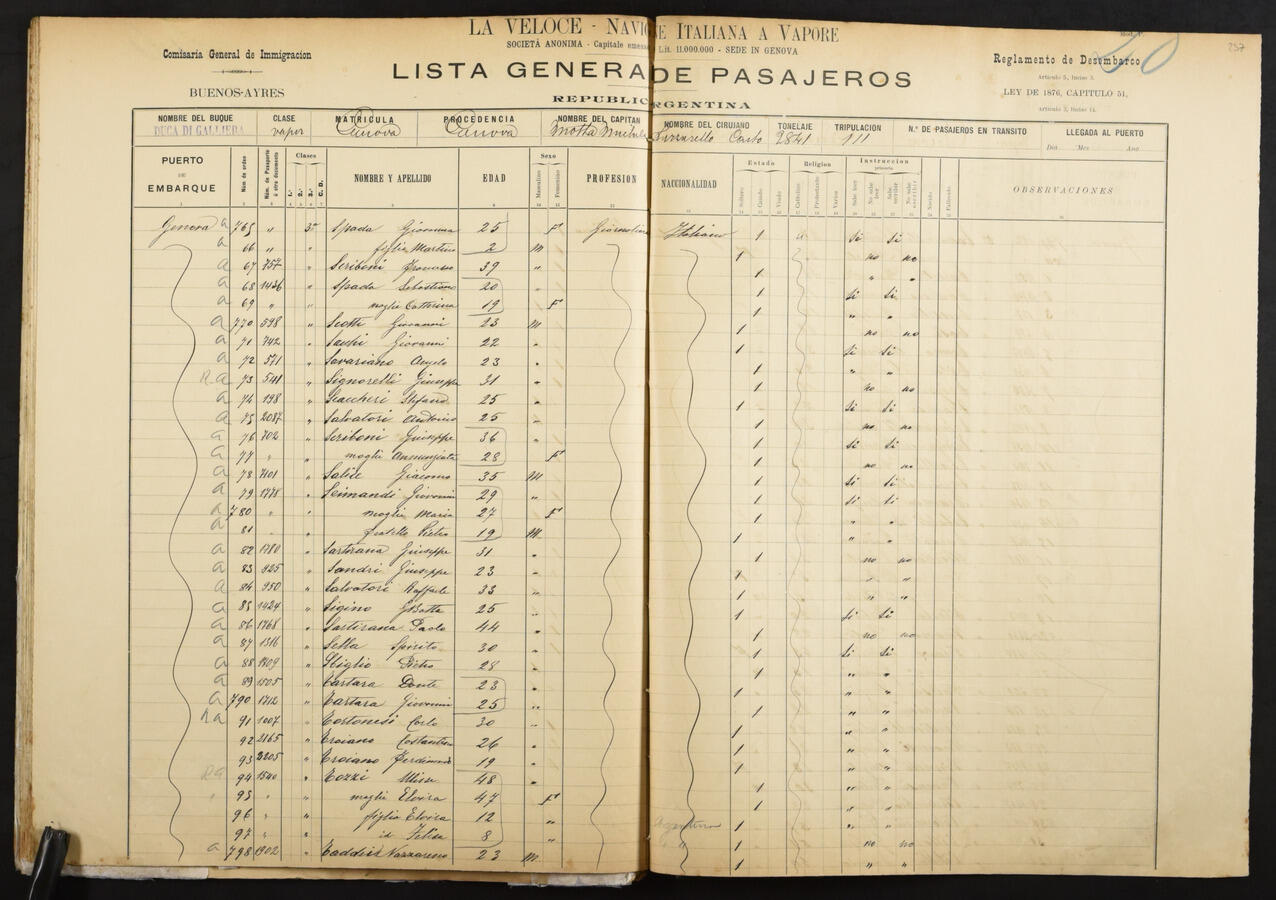 LA VELOCE - NAVIG E ITALIANA A VAPORE
SOCIETÀ ANONIMA - Capitale emess Lit. 11.000.000 - SEDE IN GENOVA
Comisaría General de Immigracion
BUENOS-AYRES
LISTA GENERA DE PASAJEROS
REPUBLIC ARGENTINA
Reglamento de Desembarco
Articulo 5, Inciso 3.
LEY DE 1876, CAPITULO 51,
20
257
NOMBRE DEL BUQUE CLASE MATRICULA PROCEDENCIA NOMBRE DEL CAPITAN NOMBRE DEL CIRUJANO TONELAJE TRIPULACION N.º DE PASAJEROS EN TRANSITO LLEGADA AL PUERTO
DUCA DI GALLIERA vapor Genova Genova 2841 111 Dia Mes Ano
PUERTO DE EMBARQUE Núm de orden Núm. de Pasaporte ó otro documento Clases 1.ª 2.ª 3.ª C. D. NOMBRE Y APELLIDO EDAD Sexo Masculino Femenino PROFESION NACCIONALIDAD Estado Soltero Casado Viudo Religion Catolico Protestante Varios Instruccion primaria Sabe leer No sabe leer Sabe escribir No sabe escribir Nacido Fallecido OBSERVACIONES
Genova a 765 " 3ª Spada Giovanna 25 Fª Italiano 1 Si Si
a 66 " " figlio Martino 2 M 1 no no
a 67 757 " Scriboni Francesco 39 " 1 " "
a 68 1436 " Spada Sebastiano 20 1 Si Si
a 69 " " moglie Catterina 19 Fª 1 " "
a 770 598 " Scotti Giovanni 23 M 1 no no
a 71 742 " Giovanni 22 " 1 Si Si
a 72 571 " Savariano Angelo 23 " 1 " "
R a 73 541 " Signorelli Giuseppe 31 " 1 no no
a 74 198 " Scaccheri Stefano 25 " 1 Si Si
a 75 2087 " Salvatori Antonio 25 " 1 no no
a 76 702 " Scriboni Giuseppe 36 " 1 Si Si
a 77 " " moglie Annunziata 28 Fª 1 no no
a 78 " Giacomo 35 M 1 Si Si
a 79 1778 " Seimandi Giovanni 29 " 1 Si Si
a 780 " " moglie Maria 27 Fª 1 " "
a 81 " " fratello Pietro 19 M 1 " "
a 82 1780 " Sartirana Giuseppe 31 " 1 no no
a 83 925 " Sandri Giuseppe 23 " 1 " "
a 84 950 " Salvatori Raffaele 33 " 1 " "
a 85 1424 " Sigino GBatta 25 " 1 Si Si
a 86 1768 " Sartirana Paolo 44 " 1 no no
a 87 1316 " Sella Spirito 30 " 1 Si Si
a 88 " Pietro 28 " 1 " "
a 89 1505 " Tartara Dante 23 " 1 " "
a 790 1712 " Tartara Giovanni 25 " 1 " "
R a 91 1007 " Tortonesi Carlo 30 " 1 " "
92 2165 " Troiano Costantino 26 " 1 " "
93 2205 " Troiano Ferdinando 19 " 1 " "
R a 94 1540 " Tozzi Ulisse 48 " 1 " "
" 95 " " moglie Elvira 47 Fª 1 " "
96 " " figlia Elvira 12 " Argentina 1 " "
97 " " id Felisa 8 " 1 no no
a 798 1902 " Nazzareno 23 M 1 " "